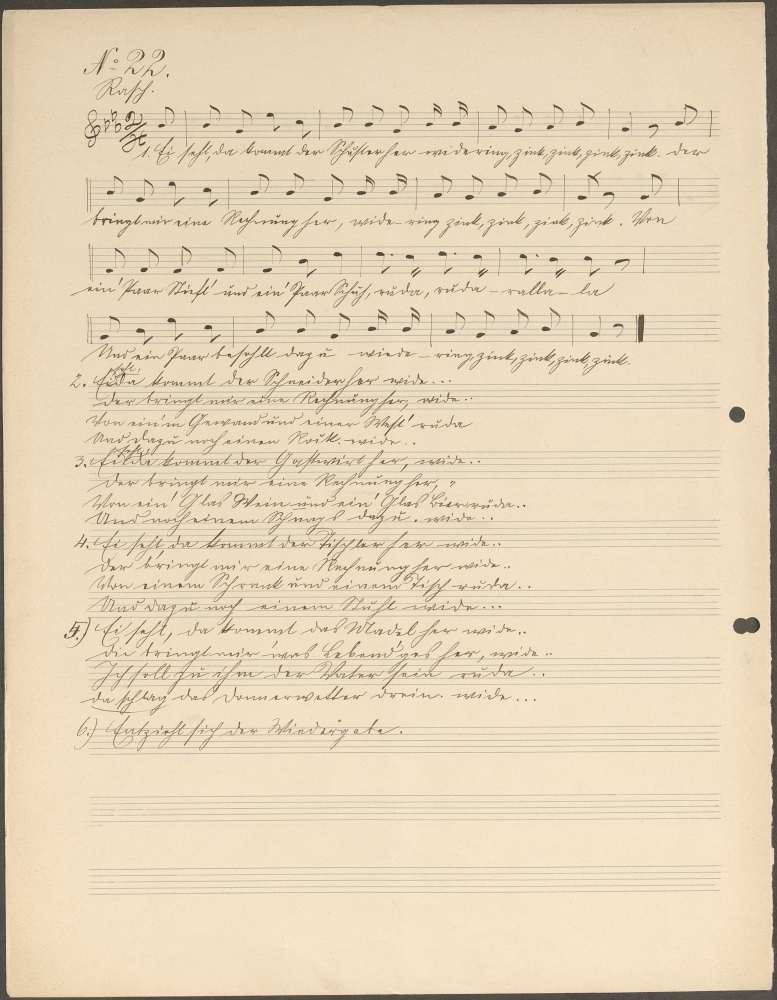 No 22.
Rasch.
1. Ei seht, da kommt der Schuster her widering, zink, zink, zink, zink. Der
bringt mir eine Rechnung her, wide-ring zink, zink, zink, zink. Von
ein' Paar Stiefl' und ein' Paar Schuh, ruda, ruda-ralla-la
Und ein Paar besohlt dazu wiede-ring zink, zink, zink, zink.
2. Ei seht, da kommt der Schneider her wide...
Der bringt mir eine Rechnung her, wide..
Von ein'm Gewand und einer West' ruda
Und dazu noch einen Rock. wide..
3. Ei seht, da kommt der Gastwirt her, wide..
Der bringt mir eine Rechnung her, "
Von ein' Glas Wein und ein' Glas Bier ruda..
Und noch einem Schnaps dazu. wide..
4. Ei seht, da kommt der Tischler her wide..
Der bringt mir eine Rechnung her wide..
Von einem Schrank und einem Tisch ruda..
Und dazu noch einem Stuhl wide...
5.) Ei seht, da kommt das Madel her wide..
Die bringt mir was Lebend'ges her, wide..
Ich soll zu ihm der Vater sein ruda..
da schlag das Donnerwetter drein. wide...
6.) Entzieht sich der Wiedergabe.